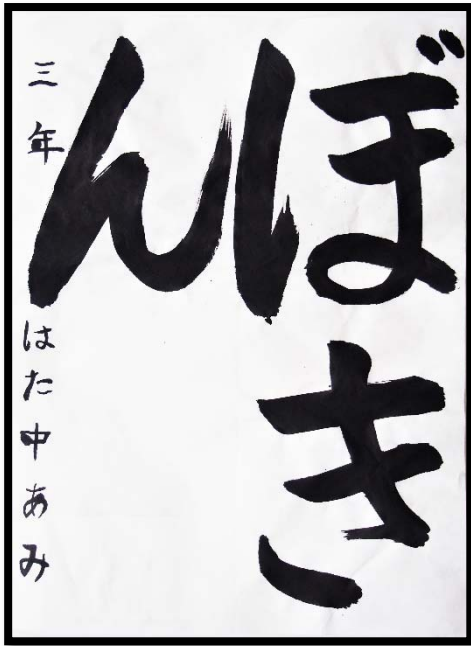 ぼき
ん
三年 はた中あみ